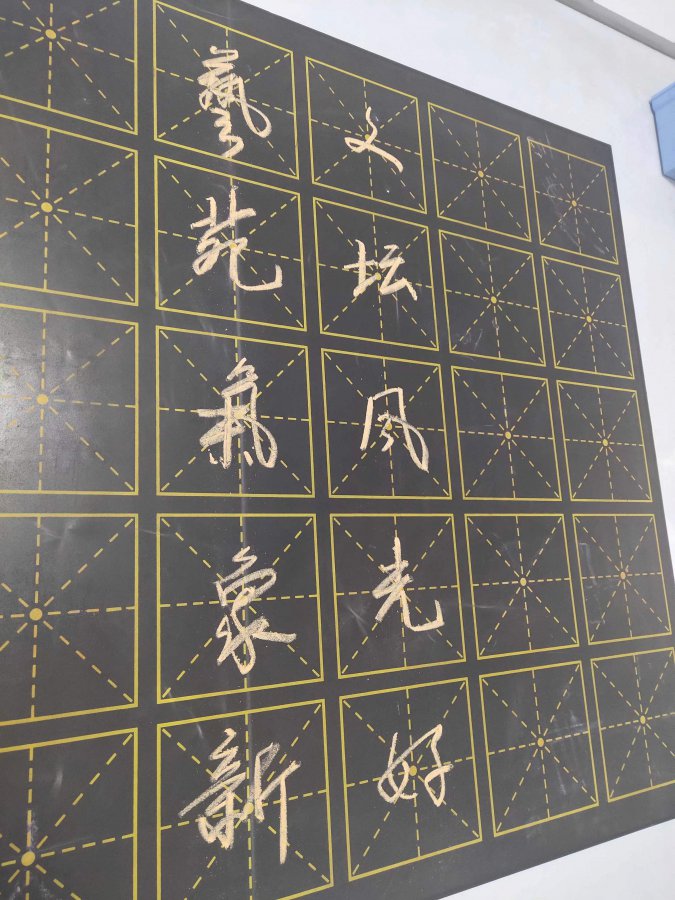 文坛风光好
藝苑氣象新